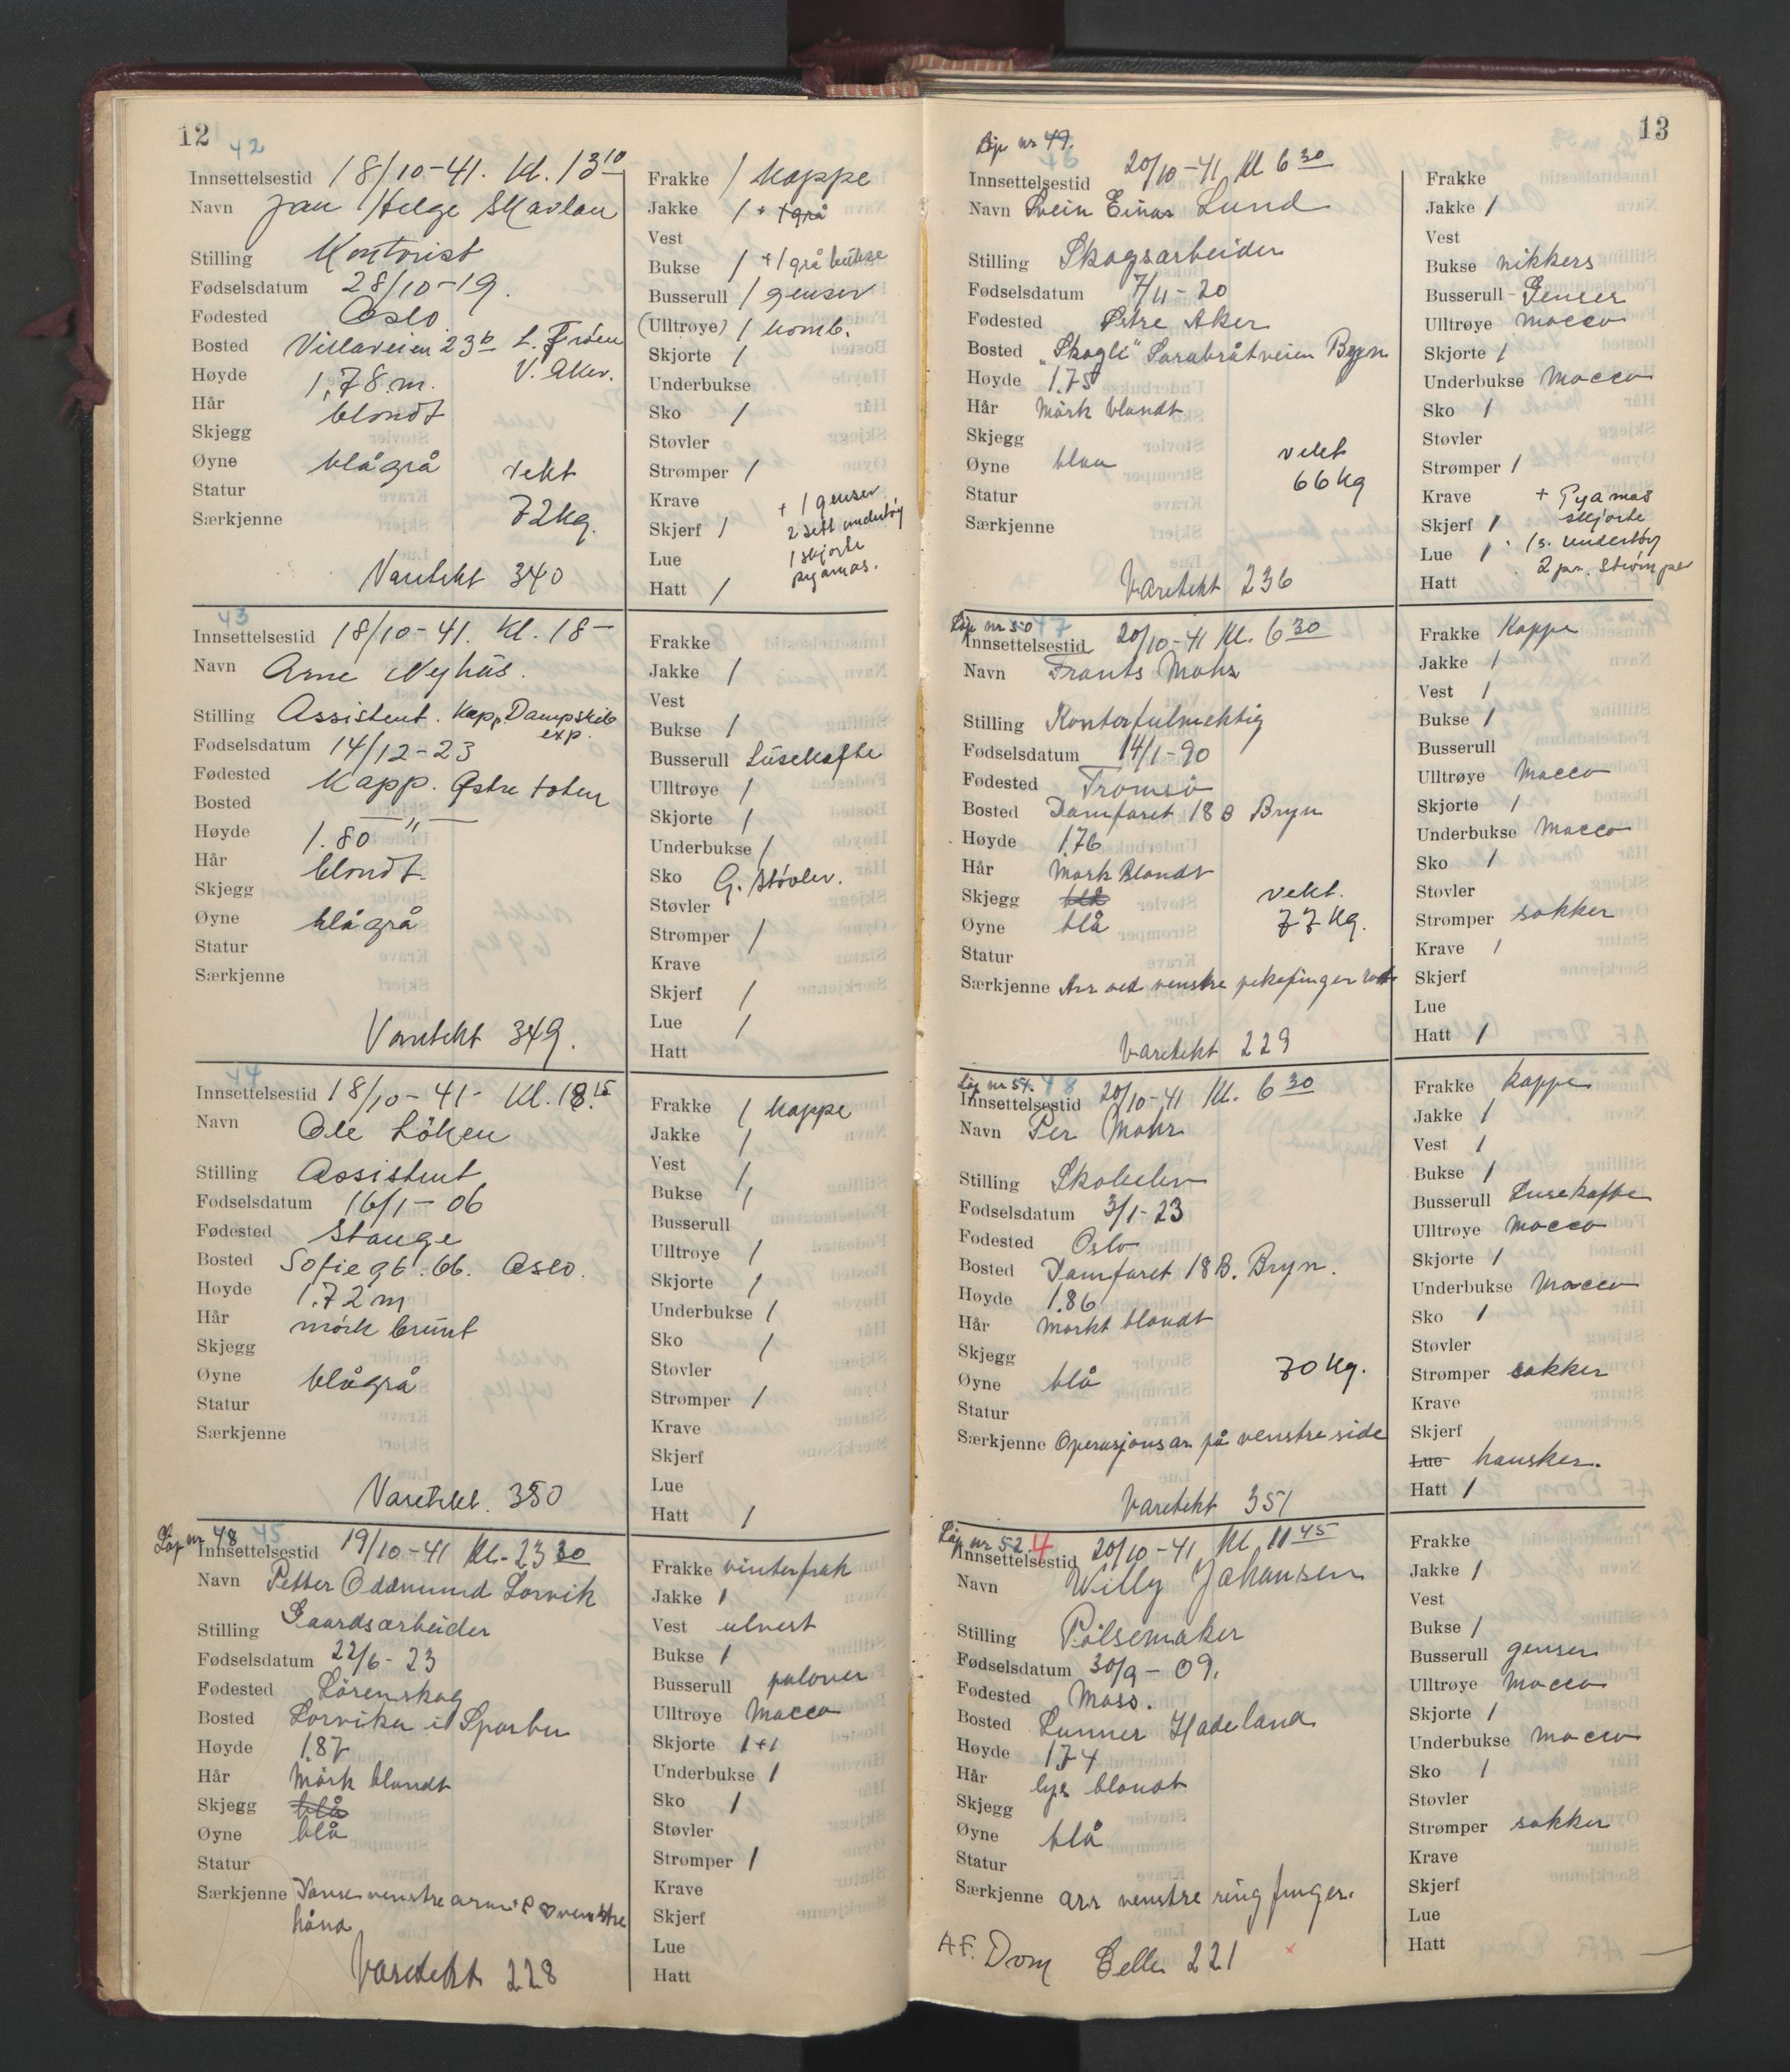 12
42
Innsettelsestid 18/10-41. Kl. 13 10
Navn Jan Helge Skavlan
Stilling Kontorist
Fødselsdatum 28/10-19.
Fødested Oslo
Bosted Villaveien 23 b L. Frøen
V. Aker.
Høyde 1,78 m.
Hår blondt
Skjegg
Øyne blågrå vekt
Statur
Særkjenne 72 kg.
Varetekt 340
Frakke 1 kappe
Jakke 1 + 1 grå
Vest
Bukse 1 + 1 grå bukse
Busserull 1 genser
(Ulltrøye) 1 komb.
Skjorte 1
Underbukse
Sko 1
Støvler
Strømper 1
Krave + 1 genser
Skjerf 1 2 sett undertøy
Lue 1 skjorte
pyamas.
Hatt 1
43
Innsettelsestid 18/10-41. Kl. 18 –
Navn Arne Nyhus.
Stilling Assistent. Kapp. Dampskib
exp.
Fødselsdatum 14/12-23
Fødested Kapp. Østre toten
Bosted — " —
Høyde 1.80
Hår blondt
Skjegg
Øyne blågrå
Statur
Særkjenne
Varetekt 349.
Frakke
Jakke 1
Vest
Bukse 1
Busserull Lusekofte
Ulltrøye 1
Skjorte 1
Underbukse 1
Sko G. Støvler.
Støvler
Strømper 1
Krave
Skjerf 1
Lue 1
Hatt
44
Innsettelsestid 18/10-41- Kl. 18.15
Navn Ole Löken
Stilling Assistent
Fødselsdatum 16/1-06
Fødested Stange
Bosted Sofie gt. 66. Oslo.
Høyde 1.72 m
Hår mörk brunt
Skjegg
Øyne blågrå
Statur
Særkjenne
Varetekt. 350
Frakke 1 kappe
Jakke 1
Vest 1
Bukse 1
Busserull
Ulltrøye 1
Skjorte 1
Underbukse 1
Sko 1
Støvler
Strømper 1
Krave
Skjerf
Lue
Hatt 1
Löp nr 48 45
Innsettelsestid 19/10-41 Kl. 23 30
Navn Petter Oddmund Lorvik
Stilling Gaardsarbeider
Fødselsdatum 22/6-23
Fødested Lörenskog
Bosted Lorviken i Sparbu
Høyde 1.87
Hår Mörk blondt
Skjegg blå
Øyne blå
Statur
Særkjenne venstre arm venstre
hånd
Varetekt 228
Frakke vinterfrak
Jakke 1
Vest ulvest
Bukse 1
Busserull pulover
Ulltrøye Macco
Skjorte 1+1
Underbukse 1
Sko 1
Støvler
Strømper 1
Krave
Skjerf
Lue
Hatt
13
Löp nr 49.
46
Innsettelsestid 20/10-41 Kl 6 30
Navn Svein Einar Lund
Stilling Skogsarbeider
Fødselsdatum 7/11-20
Fødested Östre Aker
Bosted "Skogli" Sarabråtveien Bryn
Høyde 1.75
Hår Mörk blondt
Skjegg
Øyne blaa vekt
Statur 66 kg
Særkjenne
Varetekt 236
Frakke
Jakke 1
Vest
Bukse nikkers
Busserull - Genser
Ulltrøye Macco
Skjorte 1
Underbukse Macco
Sko 1
Støvler
Strømper 1
Krave + Pyamas
Skjerf 1 skjorte
Lue 1 1 s. undertöy
Hatt 2 par. strömper
Löp nr 50 47
Innsettelsestid 20/10-41 Kl. 6 30
Navn Frants Mohr
Stilling Kontorfulmektig
Fødselsdatum 14/1-90
Fødested Tromsö
Bosted Damfaret 18 B Bryn
Høyde 1.76
Hår Mörk Blondt
Skjegg blå vekt.
Øyne blå 77 kg.
Statur
Særkjenne Arr ved venstre pekefinger rot
Varetekt 229
Frakke Kappe
Jakke 1
Vest 1
Bukse 1
Busserull
Ulltrøye Macco
Skjorte 1
Underbukse Macco
Sko 1
Støvler
Strømper sokker
Krave 1
Skjerf
Lue
Hatt 1
Löp nr 51. 48
Innsettelsestid 20/10-41 Kl. 6 30
Navn Per Mohr
Stilling Skoleelev
Fødselsdatum 3/1-23
Fødested Oslo
Bosted Damfaret 18 B. Bryn.
Høyde 1.86
Hår Morkt blondt
Skjegg
Øyne blå 70 kg.
Statur
Særkjenne Operasjonsar på venstre side
Varetekt 351
Frakke kappe
Jakke 1
Vest 1
Bukse 1
Busserull Lusekofte
Ulltrøye Macco
Skjorte 1
Underbukse Macco
Sko 1
Støvler
Strømper sokker
Krave
Skjerf
Lue hansker.
Hatt 1
Löp nr 52. 4
Innsettelsestid 20/10-41 Kl 11 45
Navn Willy Johansen
Stilling Pölsemaker
Fødselsdatum 30/9-09.
Fødested Moss.
Bosted Lunner Hadeland
Høyde 174
Hår lys blondt
Skjegg
Øyne blå
Statur
Særkjenne arr venstre ringfinger.
AF. Dom Celle 221
Frakke
Jakke 1
Vest
Bukse 1
Busserull genser
Ulltrøye Macco
Skjorte 1
Underbukse Macco
Sko 1
Støvler
Strømper sokker
Krave
Skjerf
Lue
Hatt